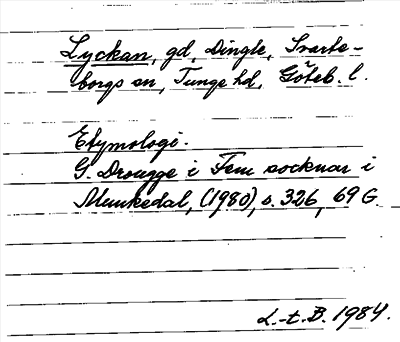 Lyckan, gd, Dingle, Svarte-
borgs sn, Tunge hd, Göteb. l.
Etymologi.
G. Drougge i Fem socknar i
Munkedal, (1980), s. 326, 69 G
L.-t. B. 1984.